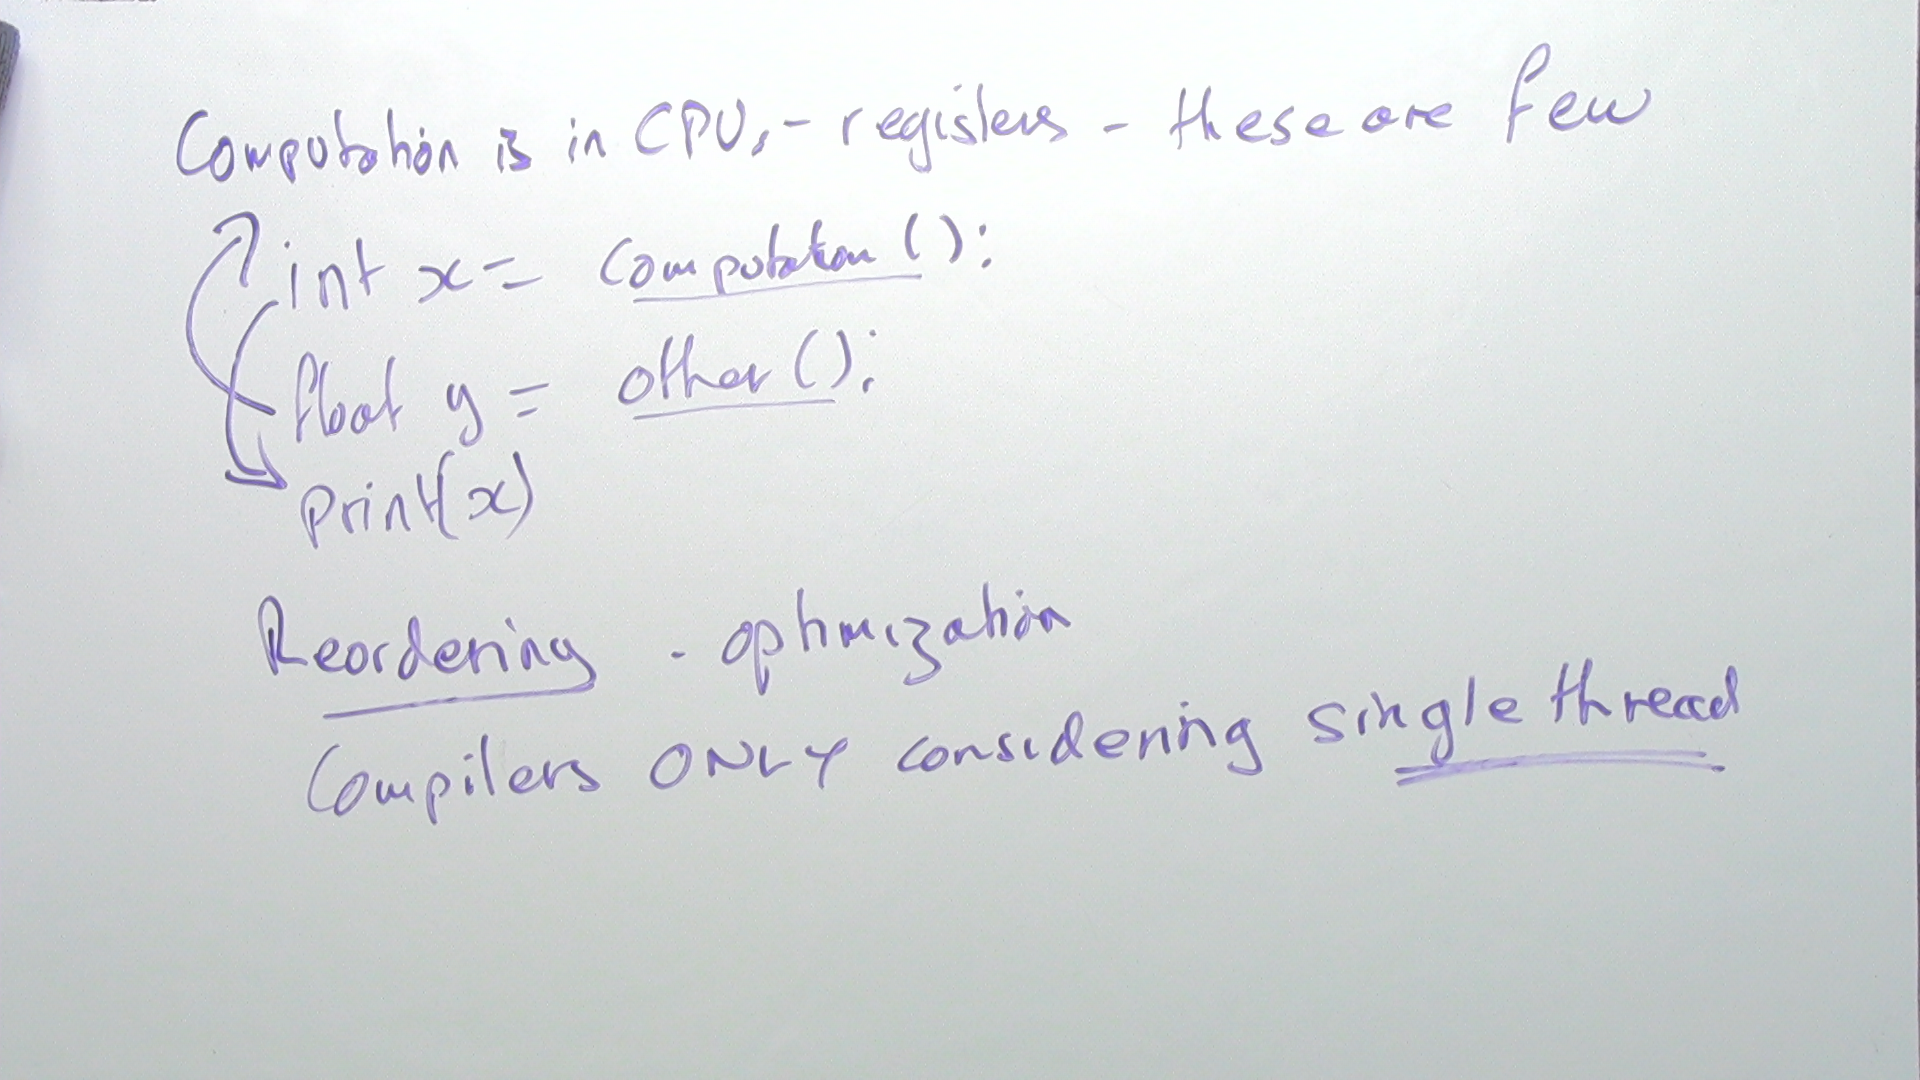 Computation is in CPU, - registers - these are few
int x = computation ();
float y = other ();
print(x)
Reordering - optimization
Compilers ONLY considering single thread